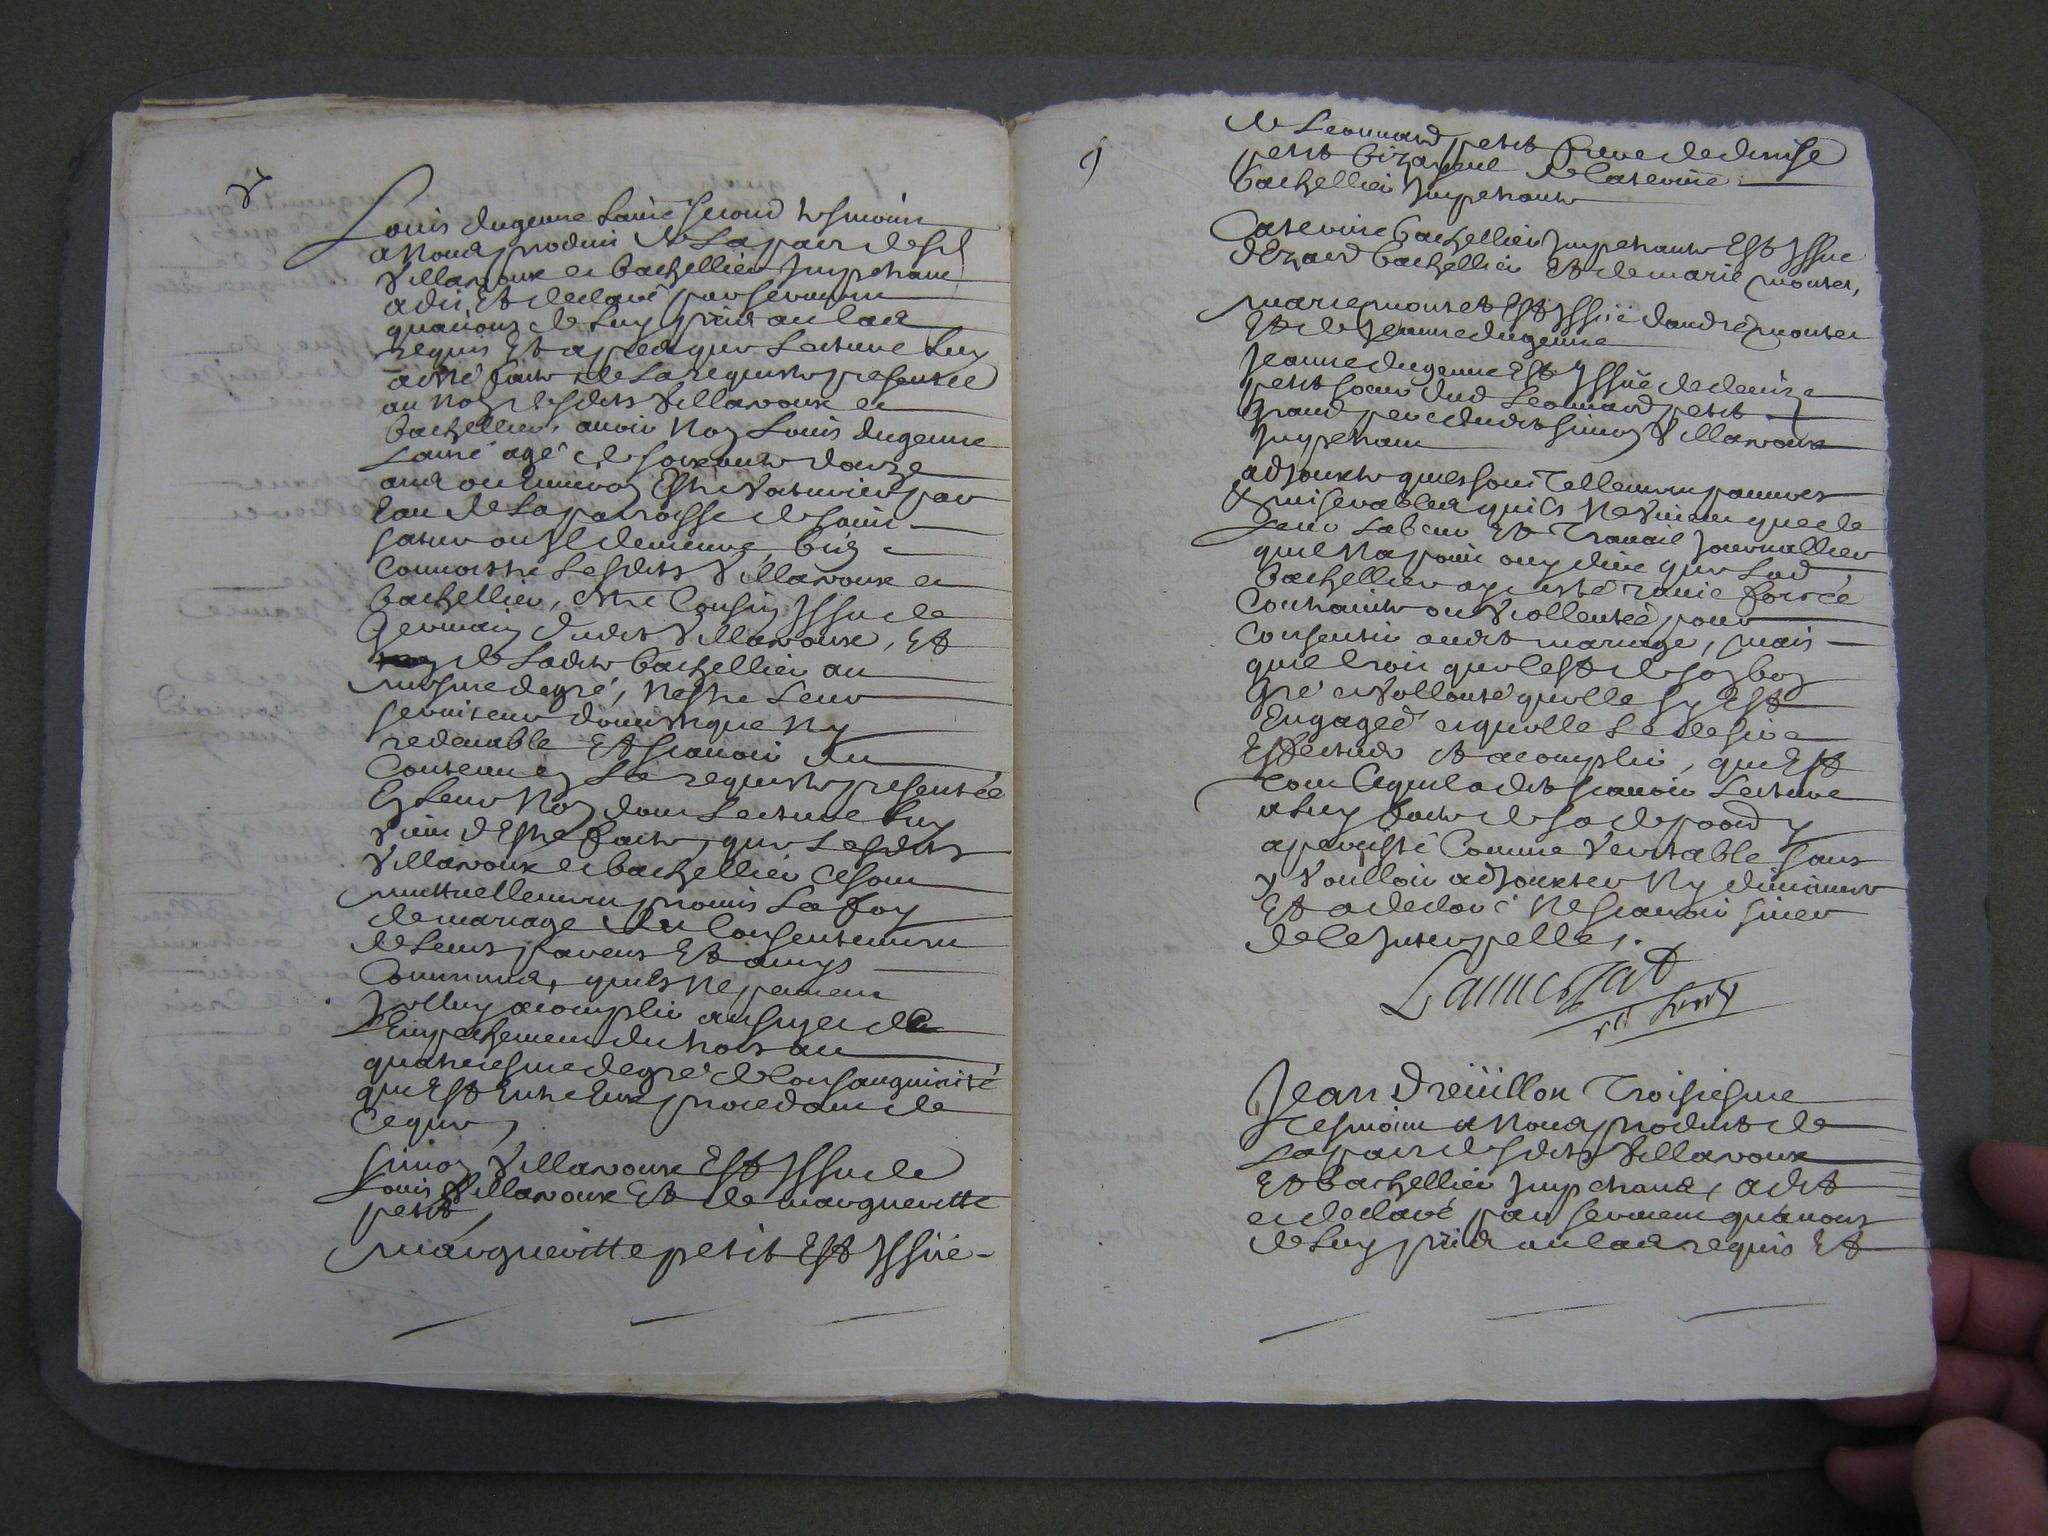 8
Louis dugenne laisné second tesmoin
a nous produit de la part desd
Villavoux et bachellier Impetrans
a dit Et declaré par serment
quavons de luy prins au cas
requis Et apres que lecture luy
a esté faite de la requeste presentée
au nom desdits Villavoux et
bachellier, avoir nom Louis dugenne
laisné agé de soixante douze
ans ou Environ Estre voiturier par
Eau de la paroisse de saint
satur ou Il demeure, bien
Connoistre lesdits Villavoux et
bachellier, estre Cousin Issu de
Germain dudit Villavoux, Et
de ladite bachellier au
mesme degré, nestre leur
serviteur domestique ny
redevable Et scavoir du
Contenu En la requeste presentée
En leur nom dont lecture luy
vient d'Estre faite, que lesdits
Villavoux et bachellier ce sont
mutuellement promis la foy
de mariage du Consentement
de leurs parens Et amys
Communs, quils ne peuvent
accomplir au sujet de
l'Empeschement du trois au
quatriesme degré de Consanguinité
qui Est Entre Eux procedant de
ce que,
Simon Villavoux Est Issu de
Louis Villavoux Et de margueritte
petit,
margueritte petit Est Issüe
9
de Leonnard petit frere de denise
petit bizayeul de Caterine
bachellier Impetrante
Caterine bachellier Impetrante Est Issue
d'Ezard bachellier Et de marie moutet,
marie moutet Est Issüe dandré moutet
Et de Jeanne dugenne
Jeanne dugenne Est Issüe de denize
petit soeur dud Leonnard petit
Grand pere dudit simon Villavoux
Impetrant
adjouxte quils sont tellement pauvres
& miserables quils ne vivent que de
leur labeur Et travail Journallier
quil na point ouy dire que lad
bachellier ay esté ravie forcée
contrainte ou viollentée pour
consentir audit mariage, mais
quil croit que cest de son bon
Gré et vollonté quelle sy Est
Engagée et quelle le desire
Effectuer Et acomplir, qui Est
tout ce quil a dit scavoir lecture
a luy faite de sa depoon y
a percisté Comme veritable sans
y voulloir adjouxter ny diminuer
Et a declaré ne scavoir siner
de ce Interpellé.
Jean Dreüillon Troisiesme
tesmoin a nous produit de
la part desdits Villavoux
Et bachellier Impetrans, a dit
et declaré par serment quavons
de luy prins au cas requis Et